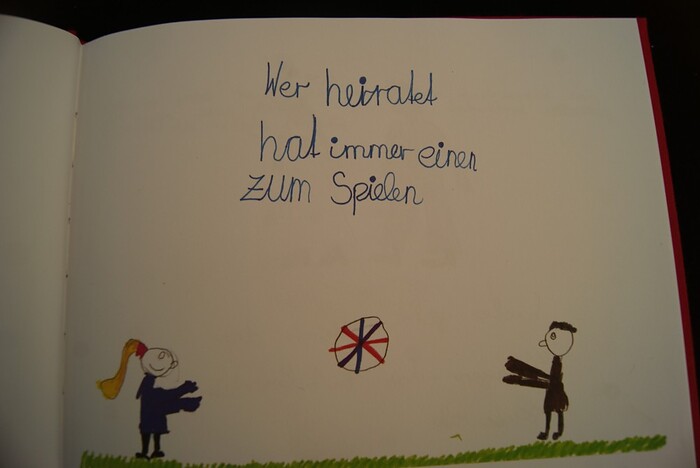 Wer heiratet
hat immer einen
zum Spielen